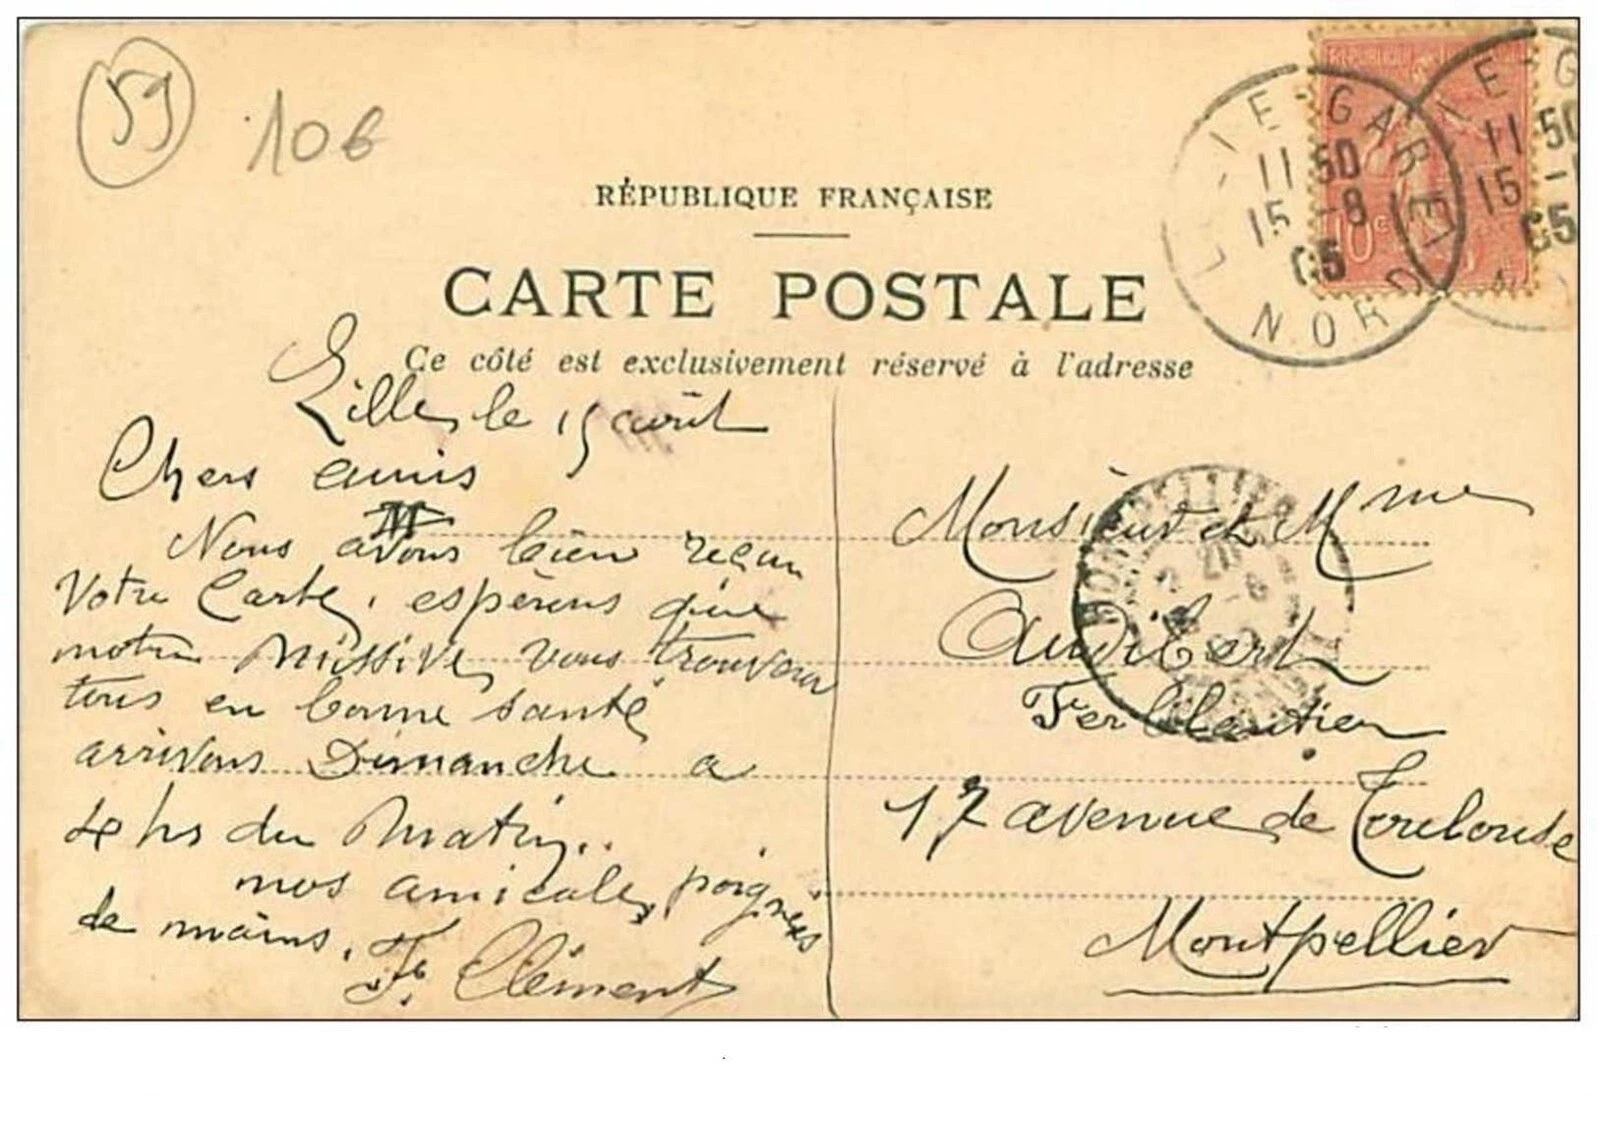 59
10 6
RÉPUBLIQUE FRANÇAISE
CARTE POSTALE
Ce côté est exclusivement réservé à l'adresse
RÉPUBLIQUE
10c
LILLE-GARE
11 50
15 -8
05
NORD
E-G
11 50
15 -
05
Lille, le 15 août
Chers amis
Nous avons bien reçu
Votre Carte, espérons que
notre Missive, vous trouvera
tous en bonne santé
arrivons Dimanche a
4 hs du Matin..
nos amicales poignées
de mains.
F. Clément
Monsieur et Mme
Audibert
Ferblantier
17 avenue de Toulouse
Montpellier
MONTPELLIER